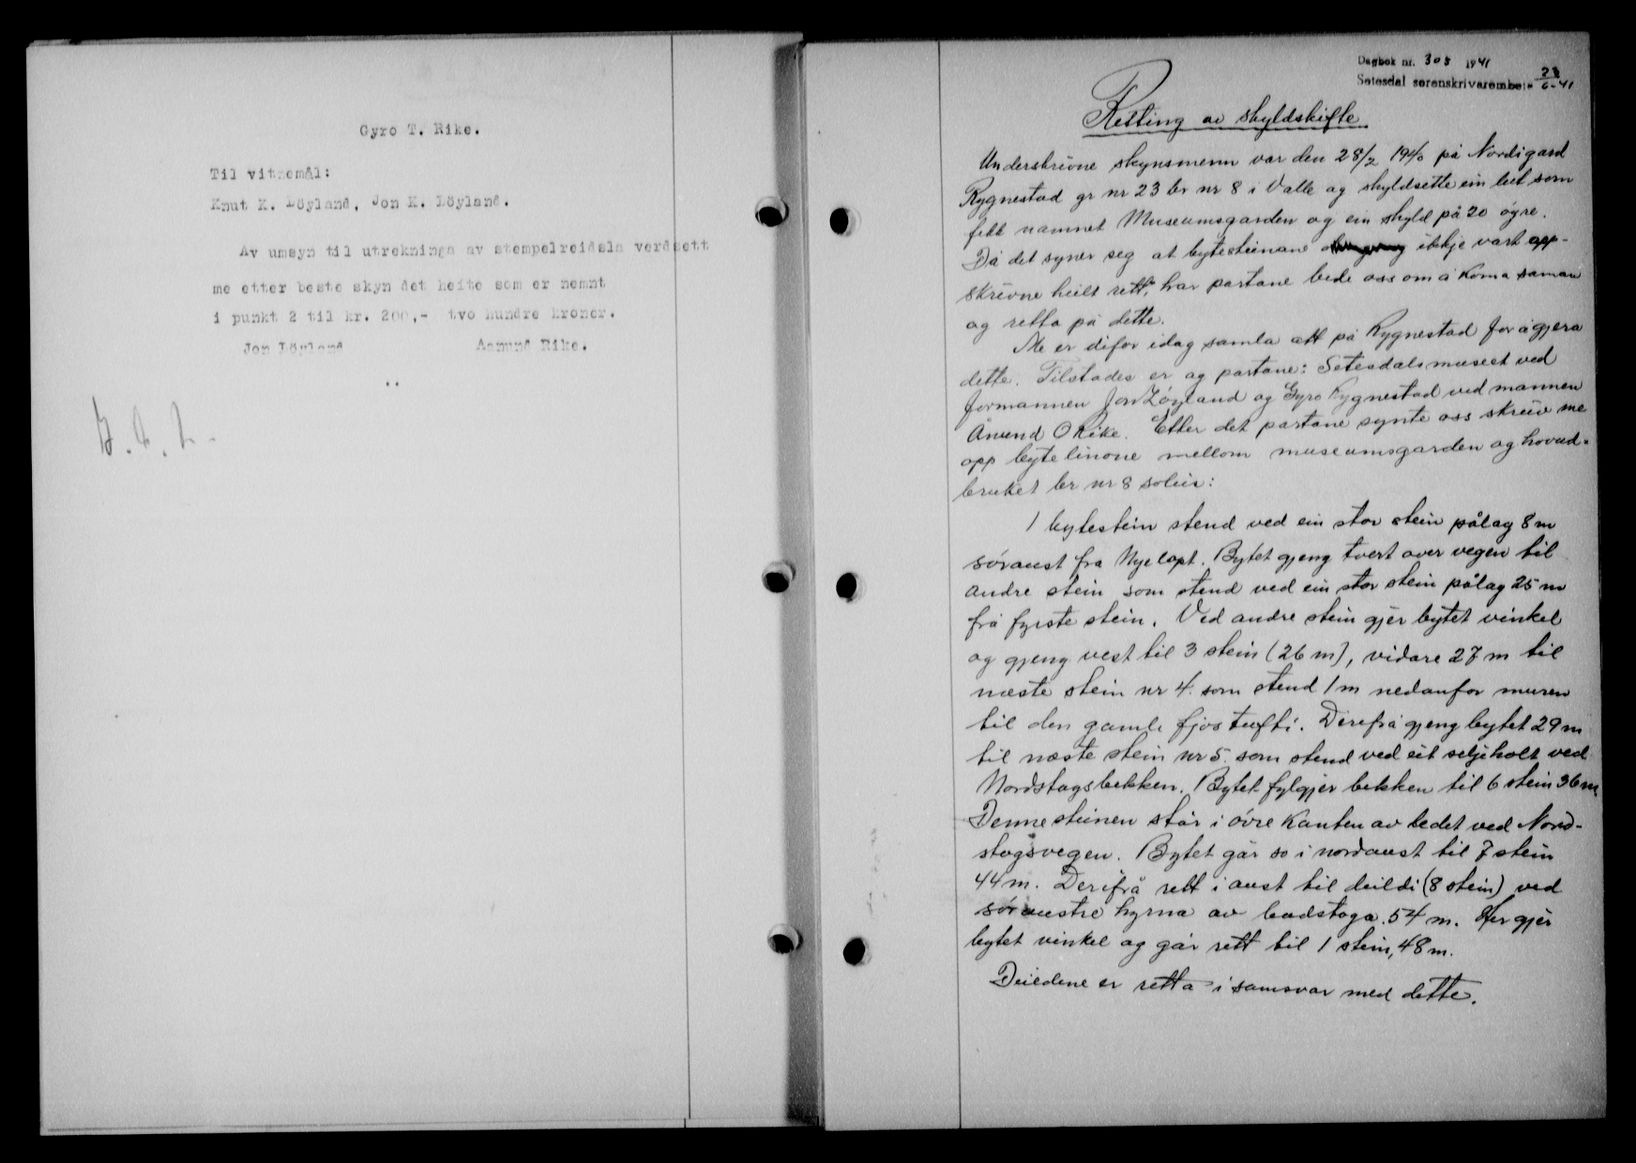 Gyro T. Rike.
Til vitnemål:
Knut K. Löyland, Jon K. Löyland.
Av umsyn til utrekninga av stempelreidsla verdsett
me etter beste skyn det heite som er nemnt
i punkt 2 til kr. 200,- tvo hundre kroner.
Jon Löyland Aamund Rike.
Dagbok nr. 308 1941
Setesdal sorenskrivarembete 28/6-41
Retting av skyldskifte
Underskrivne skynsmenn var den 28/2 1940 på Nordigard
Rygnestad gr nr 23 br nr 8 i Valle og skyldsette ein lut som
fekk namnet Museumsgarden og ein skyld på 20 øyre.
Då det syner seg at bytesteinane ikkje vart opp-
skrivne heilt rett, har partane bede oss om å koma saman
og retta på dette.
Me er difor idag samla att på Rygnestad for å gjera
dette. Tilstades er og partane: Setesdalsmuseet ved
formannen Jon Löyland og Gyro Rygnestad ved mannen
Ånund O Rike. Etter det partane synte oss skreiv me
opp bytelinone mellom museumsgarden og hovud-
bruket br nr 8 soleis:
1 bytestein stend ved ein stor stein pålag 8 m
søraust fra Nyeloft. Bytet gjeng tvert over vegen til
andre stein som stend ved ein stor stein pålag 25 m
frå fyrste stein. Ved andre stein gjer bytet vinkel
og gjeng vest til 3 stein (26 m), vidare 27 m til
næste stein nr 4. som stend 1 m nedanfor muren
til den gamle fjostufti. Derefrå gjeng bytet 29 m
til næste stein nr 5. som stend ved eit seljeholt ved
Nordstogsbekken. Bytet fylgjer bekken til 6 stein 36 m
Denne steinen står i øvre kanten av ledet ved Nord-
stogsvegen. Bytet går so i nordaust til 7 stein
44 m. Derifrå rett i aust til deildi (8 stein) ved
søraustre hyrna av badstoga. 54 m. Her gjer
bytet vinkel og går rett til 1 stein, 48 m.
Deildene er retta i samsvar med dette.